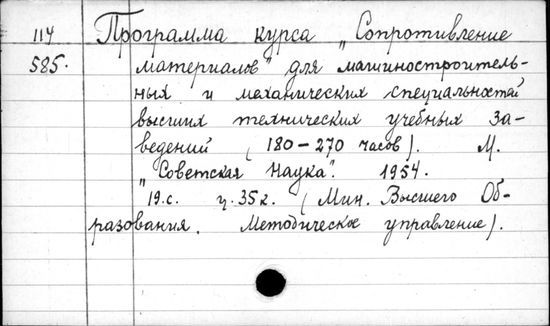 114 Программа курса „Сопротивление
585. материалов" для машиностроитель-
ных и механических специальностей
высших технических учебных за-
ведений (180-270 часов). М.
„Советская Наука". 1954.
19.с. ц.35к. (Мин. Высшего Об-
разования. Методическое управление).